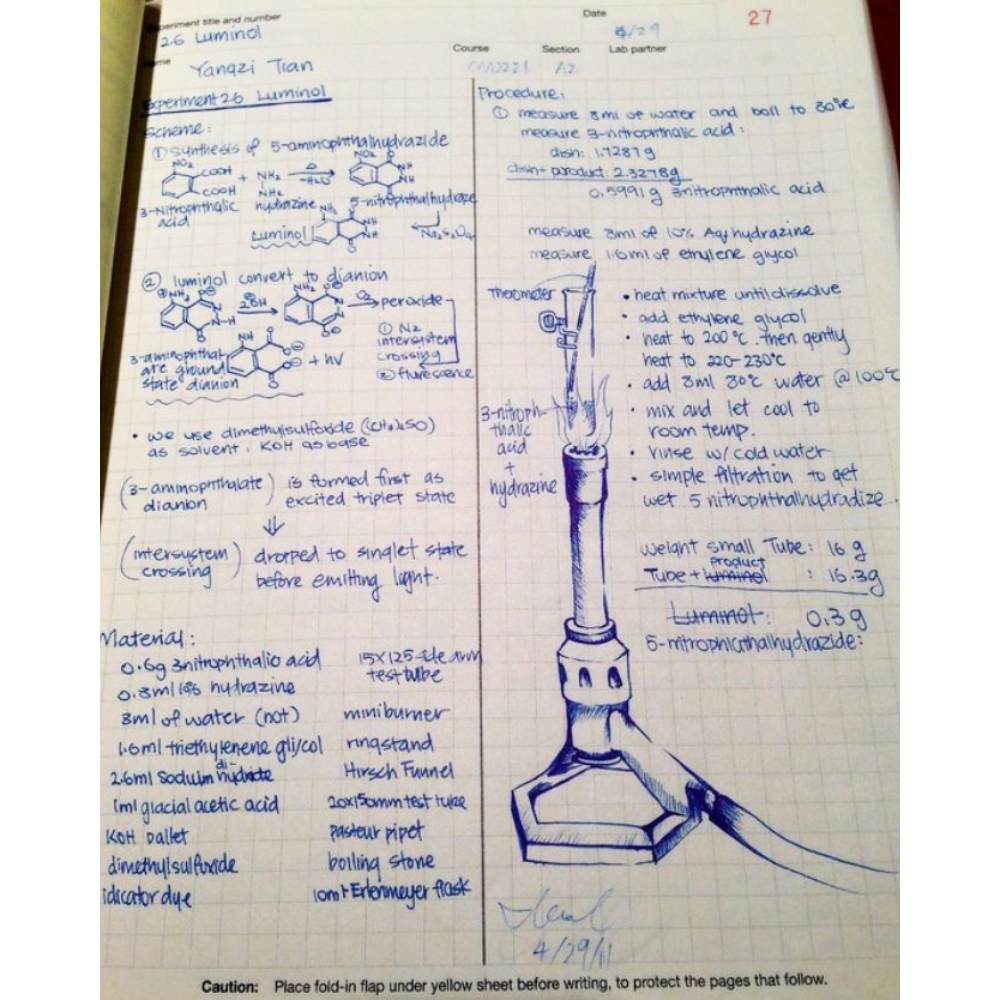 Experiment title and number
Date
27
26 Luminol
4/29
Name
Course
Section
Lab partner
Yangzi Tian
A2
Experiment 26 Luminol
Scheme:
① Synthesis of 5-aminophthalhydrazide
NO₂
COOH
COOH
+
NH₂
NH₂
Δ
-H₂O
NO₂
O
NH
NH
O
3-Nitrophthalic
acid
hydrazine
5-nitrophthalhydraze
Luminol
NH₂
O
NH
NH
O
Na₂S₂O₄
② luminol convert to dianion
NH₂
N
N-H
O
2OH
NH₂
N
N
O
O₂
peroxide
① N₂
intersystem
crossing
② flurescence
3-aminophthal
are ground
state dianion
NH
O
O
O
O
+ hv
• we use dimethylsulfoxide (CH₃)₂SO)
as solvent. KOH as base
(3-aminopthalate
dianion)
is formed first as
excited triplet state
⇓
(intersystem
crossing)
dropped to singlet state
before emitting light.
Material:
0.6g 3nitrophthalic acid
0.8ml 10% hydrazine
8ml of water (hot)
1.6ml triethylenene glycol
2.6ml Sodium di-
1ml glacial acetic acid
KOH pallet
dimethylsulfoxide
idicator dye
15x125
test tube
miniburner
ringstand
Hirsch Funnel
20x150mm test tube
pasteur pipet
boiling stone
10ml Erlenmeyer flask
Procedure:
① measure 8ml of water and boil to 80°C
measure 3-nitrophthalic acid:
dish: 1.7287g
dish + product: 2.3278g
0.5991g 3nitropnthalic acid
measure 8ml of 10% Aq, hydrazine
measure 1.6ml of ethylene glycol
Thermometer
• heat mixture until dissolve
• add ethylene glycol
• heat to 200°C. then gently
heat to 220-230°C
• add 8ml 80°C water @ 100°C
• mix and let cool to
room temp.
• rinse w/ cold water
• simple filtration to get
wet 5 nitrophthalhydradize.
3-nitroph-
thalic
acid
+
hydrazine
weight small Tube: 16 g
product
Tube + luminol : 16.3g
Luminol: 0.3g
5-nitrophthalhydrazide:
4/29/11
Caution: Place fold-in flap under yellow sheet before writing, to protect the pages that follow.